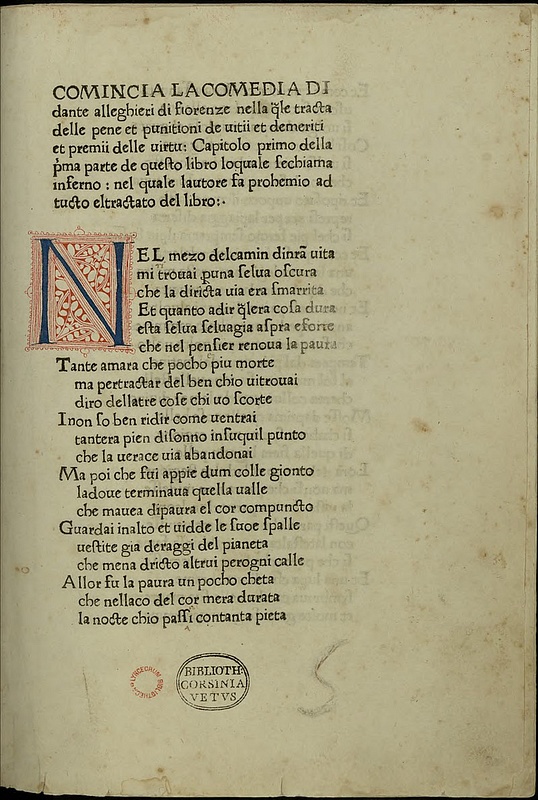 COMINCIA LACOMEDIA DI
dante alleghieri di fiorenze nella q̃le tracta
delle pene et punitioni de uitii et demeriti
et premii delle uirtu: Capitolo primo della
p̃ma parte de queſto libro loquale ſechiama
inferno : nel quale lautore fa prohemio ad
tucto eltractato del libro:·
NEL mezo delcamin dinr̃a uita
mi trouai ꝓuna ſelua oſcura
che la diricta uia era ſmarrita
Et quanto adir q̃lera coſa dura
eſta ſelua ſeluagia aſpra eforte
che nel penſier renoua la paura
Tante amara che pocho piu morte
ma pertractar del ben chio uitrouai
diro dellatre coſe chi uo ſcorte
Inon ſo ben ridir come uentrai
tantera pien diſonno inſuquil punto
che la uerace uia abandonai
Ma poi che fui appie dum colle gionto
ladoue terminaua quella ualle
che mauea dipaura el cor compuncto
Guardai inalto et uidde le ſuoe ſpalle
ueſtite gia deraggi del pianeta
che mena dricto altrui perogni calle
Allor fu la paura un pocho cheta
che nellaco del cor mera durata
la nocte chio paſſi contanta pieta
LYNCEORUM BIBLIOTHECA
BIBLIOTH·
CORSINIA
VETVS